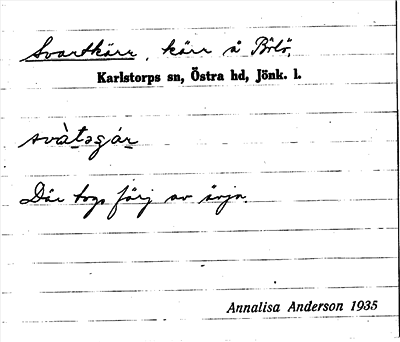 Svartkärr, kärr å Börlö,
Karlstorps sn, Östra hd, Jönk. l.
svàt̲əgár̲
Där togs färj av ävja.
Annalisa Anderson 1935